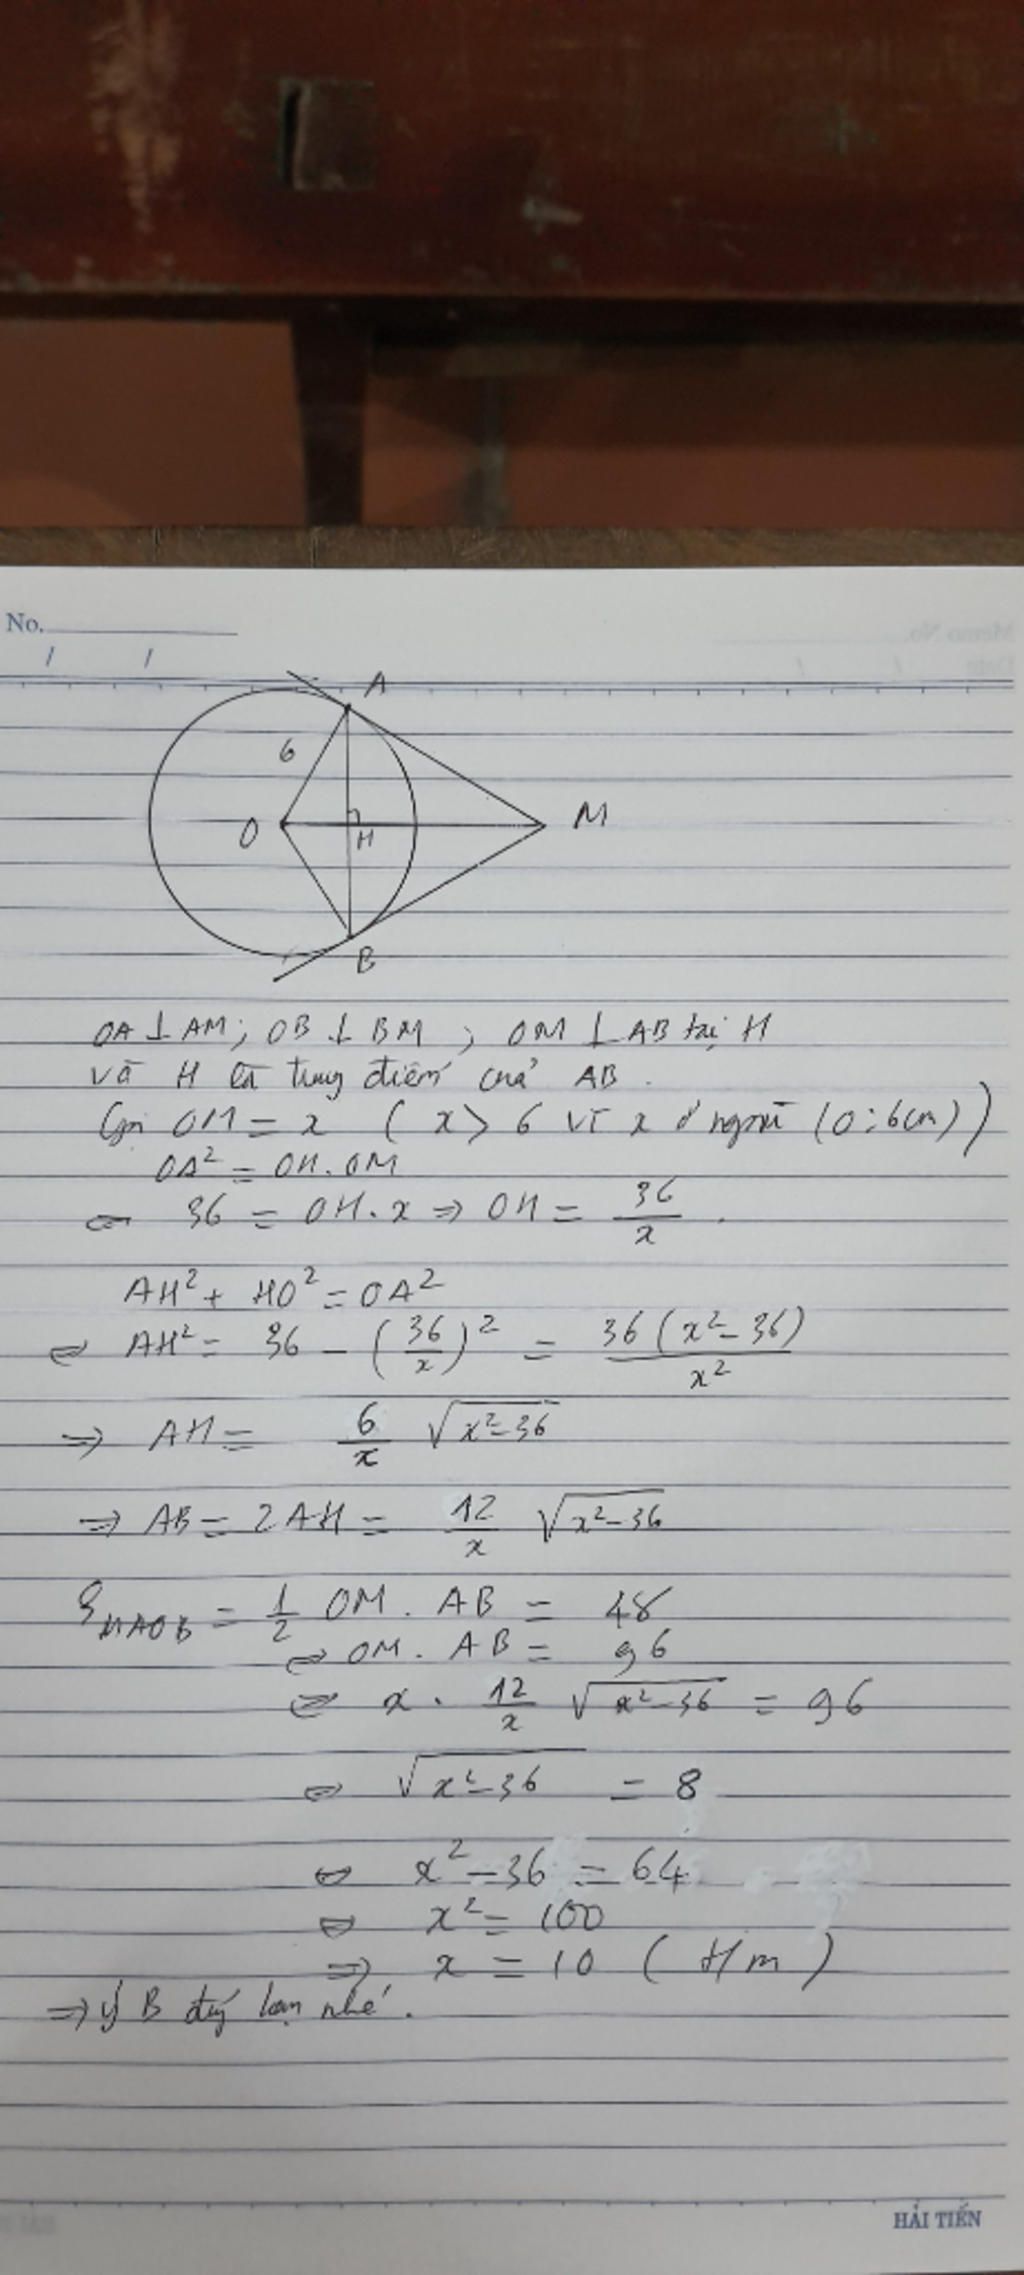 No.
Memo No.
Date
A
6
O
H
M
B
OA ⊥ AM; OB ⊥ BM ; OM ⊥ AB tại H
và H là trung điểm của AB.
Gọi OM = x ( x > 6 vì x ở ngoài (O; 6cm))
OA² = OH. OM
⇔ 36 = OH. x ⇒ OH = 36/x.
AH² + HO² = OA²
⇔ AH² = 36 - (36/x)² = 36(x² - 36)/x²
⇒ AH = 6/x √(x² - 36)
⇒ AB = 2AH = 12/x √(x² - 36)
S MAOB = 1/2 OM. AB = 48
⇔ OM. AB = 96
⇔ x. 12/x √(x² - 36) = 96
⇔ √(x² - 36) = 8
⇔ x² - 36 = 64
⇔ x² = 100
⇒ x = 10 (t/m)
⇒ ý B đúng bạn nhé.
HẢI TIẾN